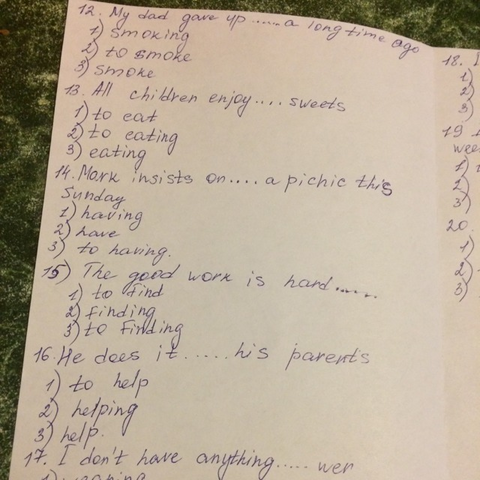 12. My dad gave up ...... a long time ago
1) smoking
2) to smoke
3) smoke
13. All children enjoy .... sweets
1) to eat
2) to eating
3) eating
14. Mark insists on .... a pichic this
Sunday
1) having
2) have
3) to having.
15) The good work is hard ......
1) to find
2) finding
3) to finding
16. He does it ...... his parents
1) to help
2) helping
3) help.
17. I don't have anything ..... wer
18.
1)
2)
3)
19
1)
2)
3)
20.
1)
2)
3)